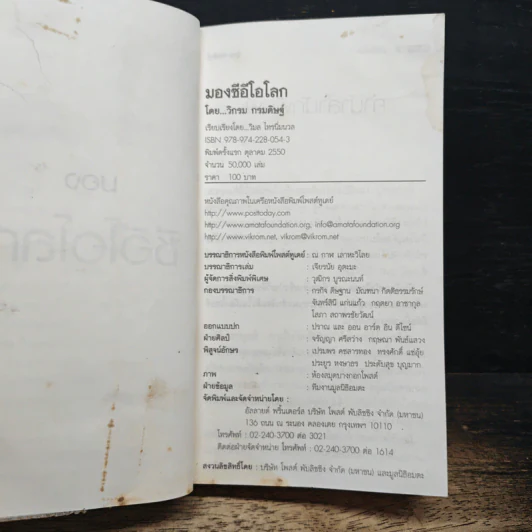 มองซีอีโอโลก
โดย...วิกรม กรมดิษฐ์
เรียบเรียงโดย...วิมล ไทรนิ่มนวล
ISBN 978-974-228-054-3
พิมพ์ครั้งแรก ตุลาคม 2550
จำนวน 50,000 เล่ม
ราคา 100 บาท
หนังสือคุณภาพในเครือหนังสือพิมพ์โพสต์ทูเดย์
http://www.posttoday.com
http://www.amatafoundation.org, info@amatafoundation.org
http://www.vikrom.net, vikrom@vikrom.net
บรรณาธิการหนังสือพิมพ์โพสต์ทูเดย์ : ณ กาฬ เลาหะวิไลย
บรรณาธิการเล่ม : เจียรนัย อุตะมะ
ผู้จัดการสิ่งพิมพ์พิเศษ : วุฒิกร บูรณะนนท์
กองบรรณาธิการ : กรกิจ ดิษฐาน มัณฑนา กิตติธรรมรักษ์
จันทร์สินี แก่นแก้ว กฤตยา อาชากุล
โสภา สถาพรชัยวัฒน์
ออกแบบปก : ปราณ และ ออน อาร์ต อิน ดีไซน์
ฝ่ายศิลป์ : จรัญญา ศรีสว่าง กฤษณา พันธ์แสวง
พิสูจน์อักษร : เปรมพร ทรงศักดิ์
ประยูร หงษาธร ประดับสุข บุญมาก
ภาพ : ห้องสมุดบางกอกโพสต์
ฝ่ายข้อมูล : ทีมงานมูลนิธิอมตะ
จัดพิมพ์และจัดจำหน่ายโดย :
อัลลายด์ พริ้นเตอร์ส บริษัท โพสต์ พับลิชชิง จำกัด (มหาชน)
136 ถนน ณ ระนอง คลองเตย กรุงเทพฯ 10110
โทรศัพท์ : 02-240-3700 ต่อ 3021
ติดต่อฝ่ายจัดจำหน่าย โทรศัพท์ : 02-240-3700 ต่อ 1614
สงวนลิขสิทธิ์โดย : บริษัท โพสต์ พับลิชชิง จำกัด (มหาชน) และมูลนิธิอมตะ